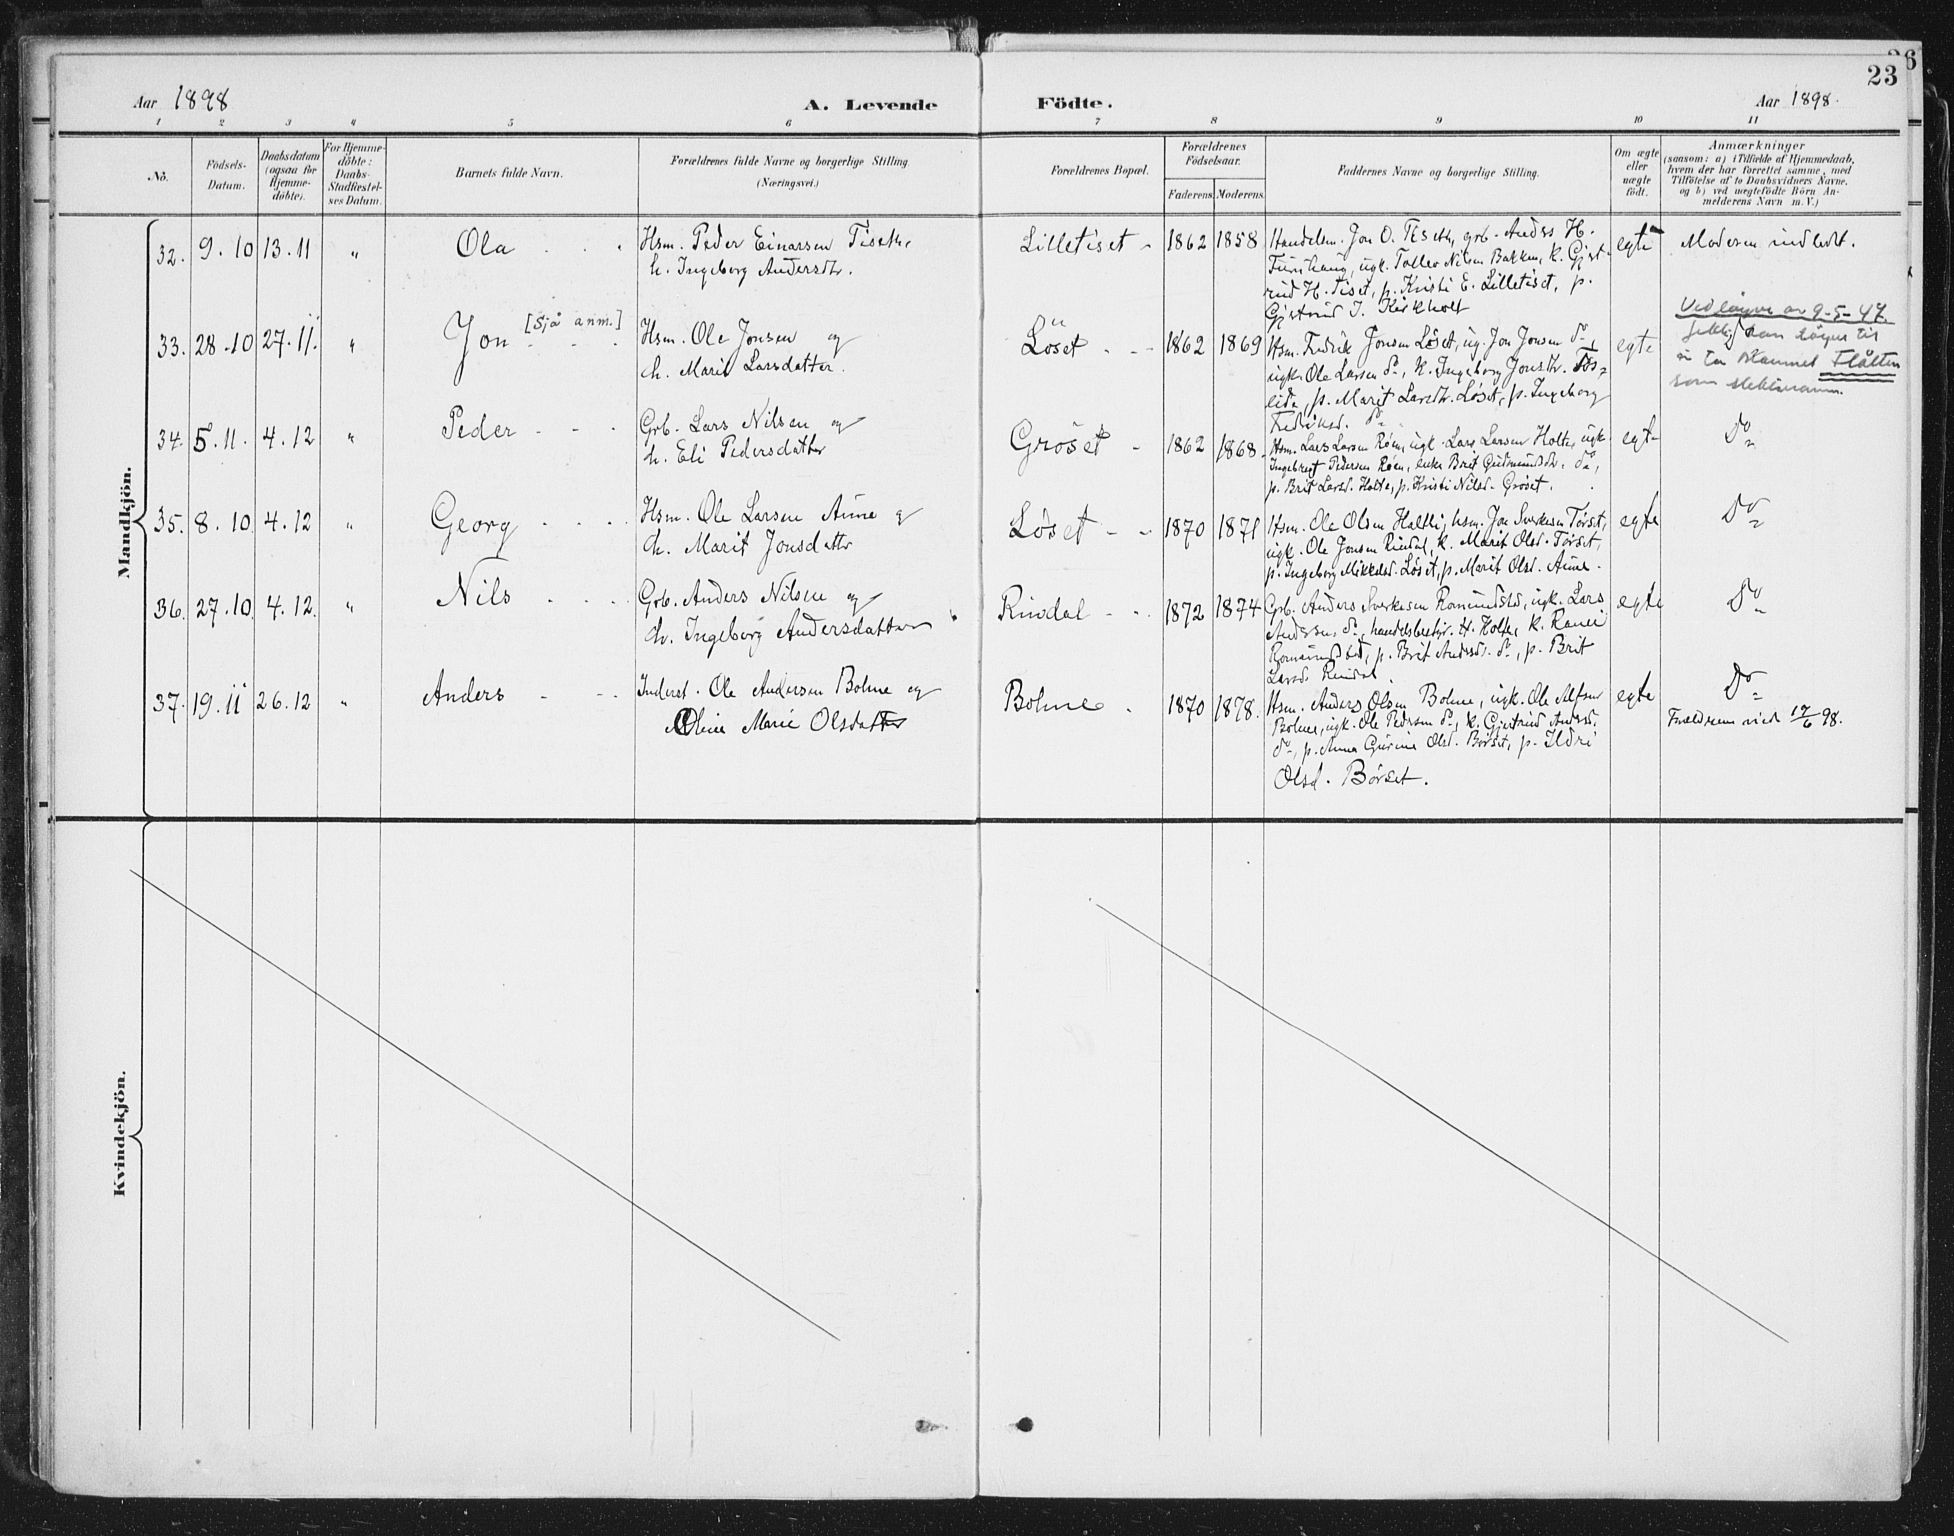 26
23
Aar 1898
A. Levende
Födte.
Aar 1898.
1 2 3 4 5 6 7 8 9 10 11
No.
Födsels-
Datum.
Daabsdatum
(ogsaa for
Hjemme-
döbte).
For Hjemme-
döbte:
Daabs-
Stadfæstel-
ses Datum.
Barnets fulde Navn.
Forældrenes fulde Navne og borgerlige Stilling
(Næringsvei.)
Forældrenes Bopæl.
Forældrenes
Födselsaar.
Faderens. Moderens.
Faddernes Navne og borgerlige Stilling.
Om ægte
eller
uægte
födt.
Anmærkninger
(saasom: a) i Tilfælde af Hjemmedaab,
hvem der har forrettet samme, med
Tilföielse af to Daabsvidners Navne,
og b) ved uægtefödte Börn An-
melderens Navn m. V.)
Mandkjön.
32. 9.10 13.11 " Ola
Hsm. Peder Einarsen Tiseth
h. Ingeborg Andersdtr.
Lilletiset 1862 1858
Handelsm. Jon O. Tiseth, grb. Anders H.
Furuhaug, ugk. Tollev Nilsen Bakken, k. Gjert-
rud H. Tiset, p. Kristi E. Lilletiset, p.
Gjertrud J. Kirkholt
egte
Moderen indledt.
33. 28.10 27.11. " Jon [Sjå anm.]
Hsm. Ole Jonsen og
h. Marit Larsdatter.
Löset 1862 1869
Hsm. Fredrik Jonsen Löset, ug. Jon Jonsen do,
ugk. Ole Larsen do, k. Ingeborg Jonsdtr. Fos-
lide, p. Marit Larsdtr. Löset, p. Ingeborg
Fredriksd. do
egte
Ved løyve av 9-5-47
fekk han løyve til
å ta stamnet Flåtten
som slektsnamn.
34. 5.11. 4.12 " Peder
Grb. Lars Nilsen og
h. Eli Pedersdatter
Grøset 1862 1868.
Hsm. Lars Larsen Røen, ugk. Lars Larsen Holte, ugk.
Ingebrigt Pedersen Røen, enke Brit Gudmundsdtr. do,
p. Brit Larsd. Holte, p. Kristi Nilsd. Grøset.
egte
Do
35. 8.10 4.12 " Georg
Hsm. Ole Larsen Aune og
h. Marit Jonsdattr
Løset 1870 1871
Hsm. Ole Olsen Haltli, hsm. Jon Sverkesen Tørset,
ugk. Ole Jonsen Rindal, k. Marit Olsd. Tørset,
p. Ingeborg Mikkelsd. Løset, p. Marit Olsd. Aune.
egte
Do
36. 27.10. 4.12. " Nils
Grb. Anders Nilsen og
h. Ingeborg Andersdatter
Rindal 1872 1874
Grb. Anders Sverkesen Romundstd, ugk. Lars
Andersen do, handelsbetjr. H. Holte, k. Ranei
Romundstad, p. Brit Andersd. do, p. Brit
Larsd. Rindal.
egte
Do
37. 19.11 26.12 " Anders
Inderst. Ole Andersen Bolme og
Oline Marie Olsdatter
Bolme. 1870 1878.
Hsm. Anders Olsen Bolme, ugk. Ole
Bolme, ugk. Ole Pedersen do, k. Gjertrud Andersd.
do, p. Anna Gurine Olsd. Børset, p. Ildri
Olsd. Børset.
egte
Do
Forældrene viede 17/6 98.
Kvindekjön.